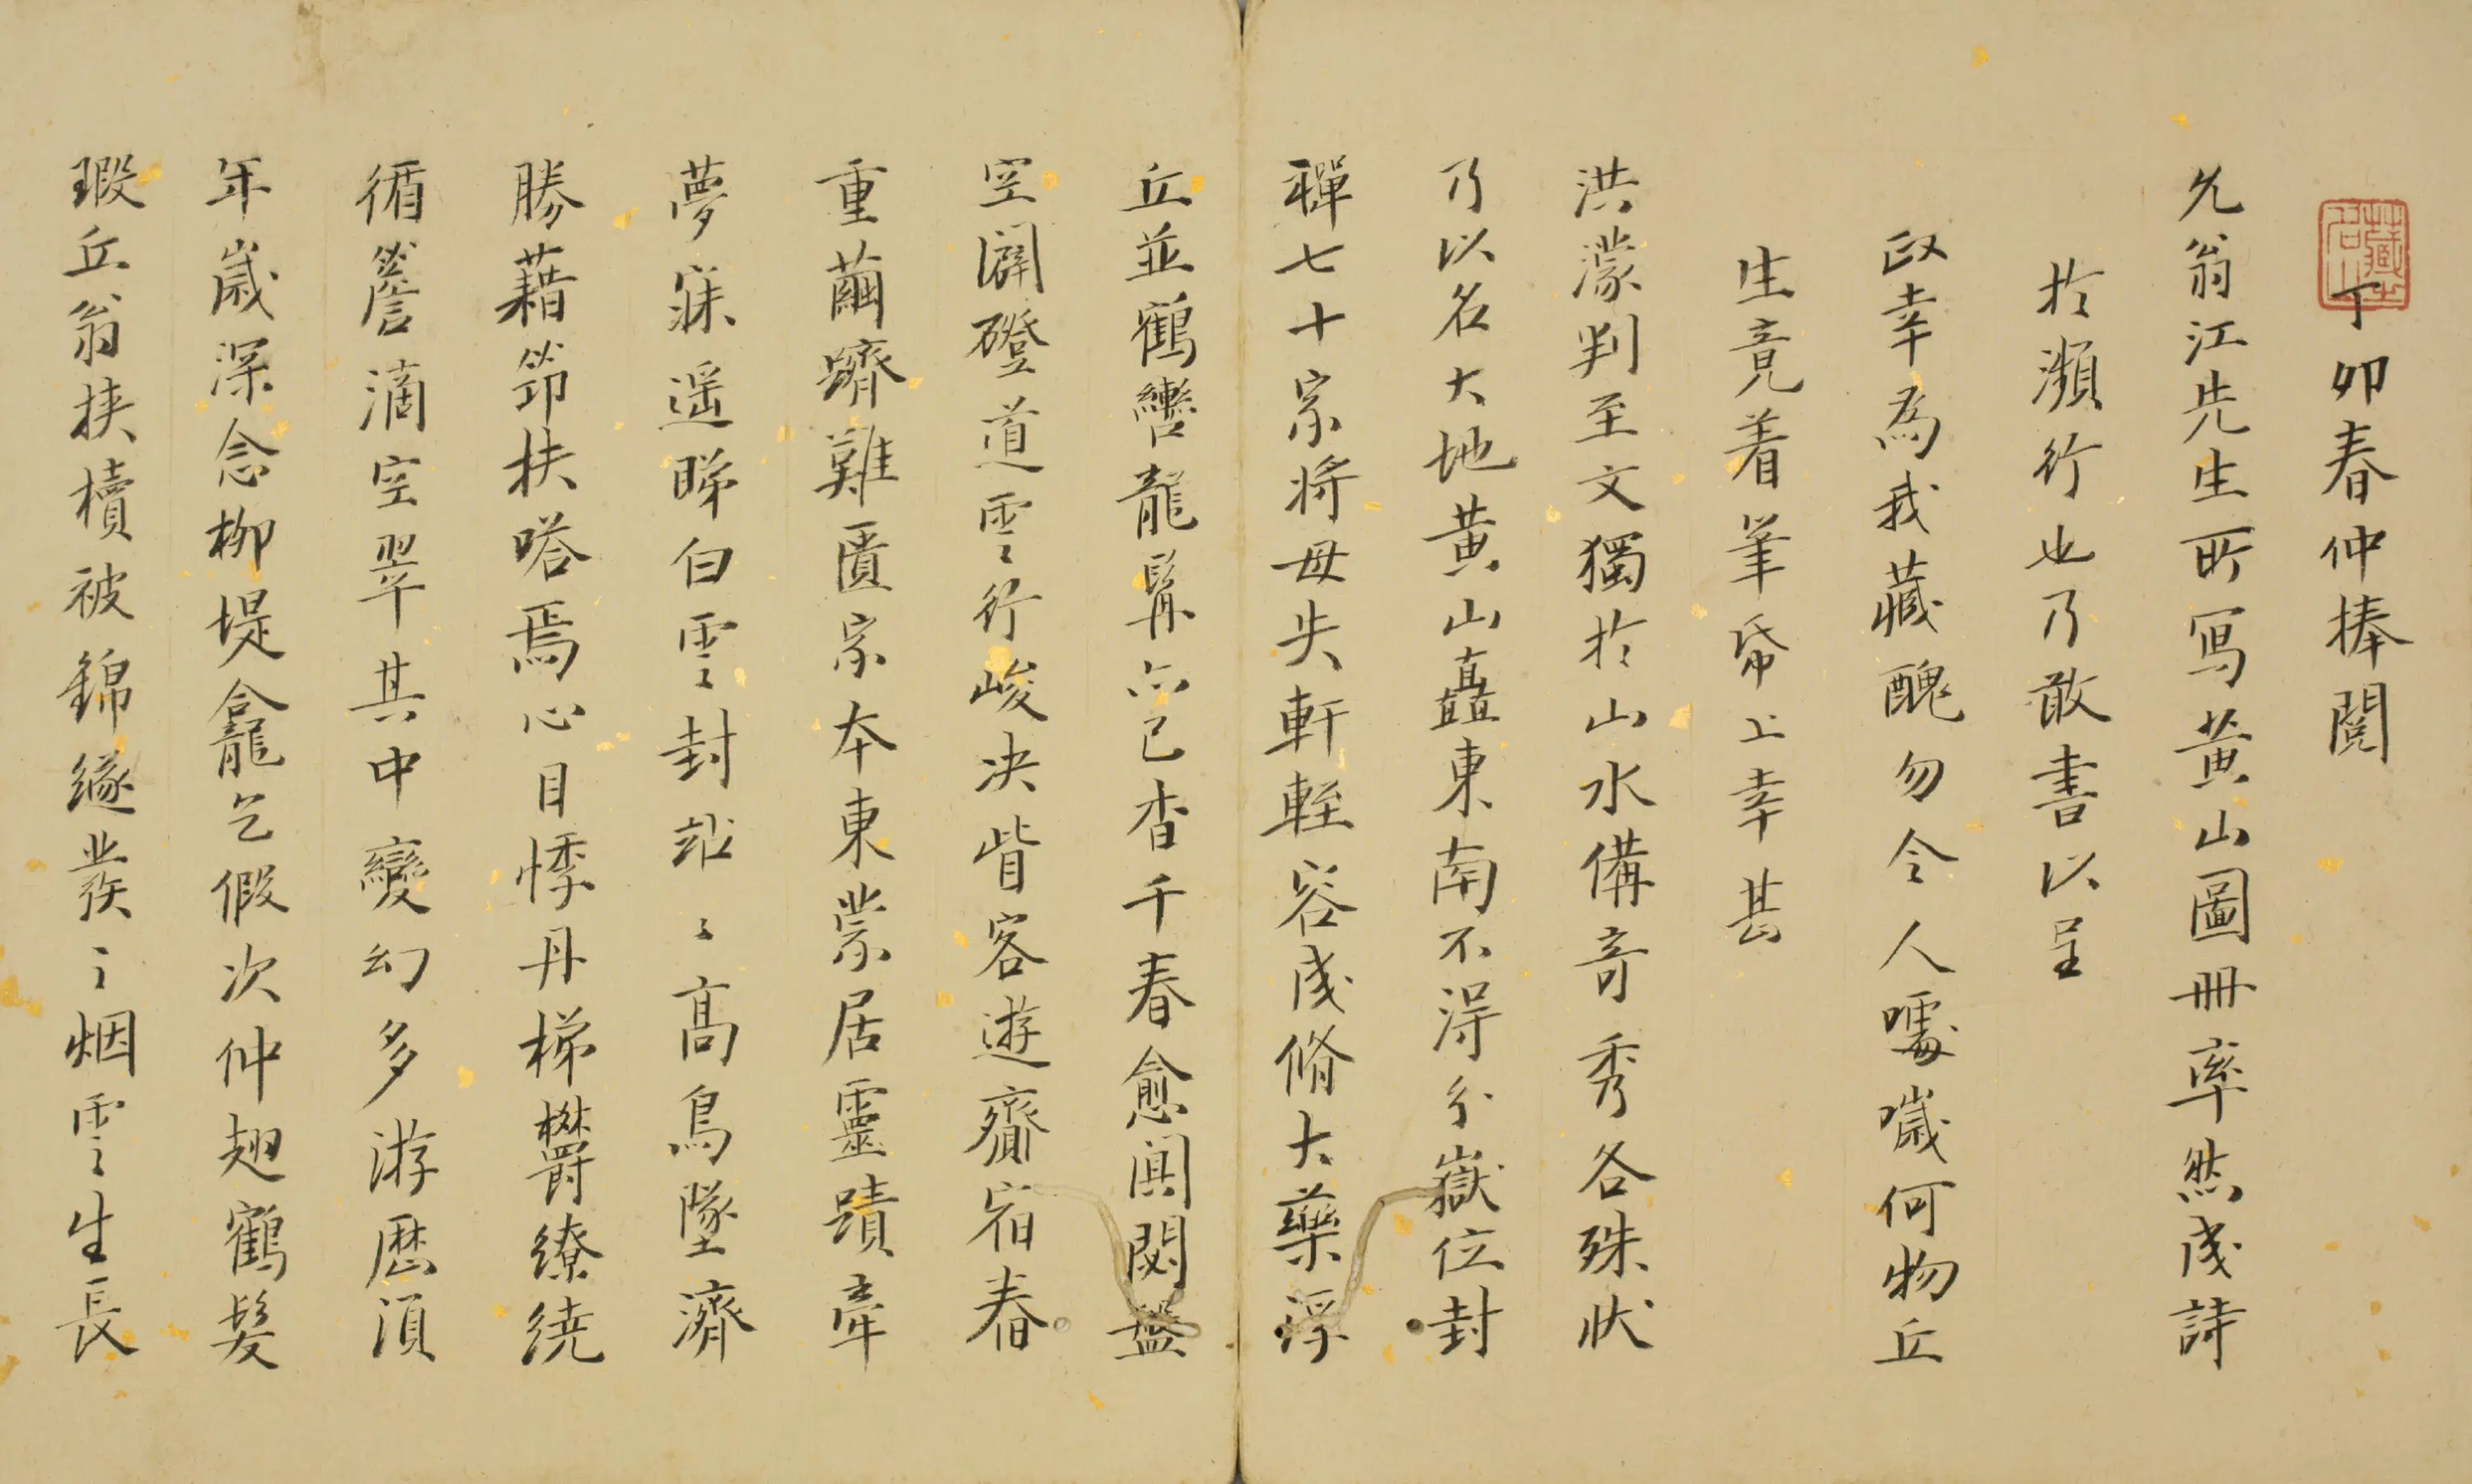 藏之名山
丁卯春仲捧閱
允翁江先生所寫黃山圖冊率然成詩
於瀕行也乃敢書以呈
政幸為我藏醜勿令人噱噦何物丘
生竟着筆帋上幸甚
洪濛判至文獨於山水備奇秀各殊狀
乃以名大地黃山矗東南不淂分嶽位封
禪七十家將毋失軒輊容成脩大藥浮
丘並鶴轡龍髯亦已杳千春愈闃閟盤
空闢磴道雲雲行峻决眥客遊齎宿舂
重繭躋難匱家本東崇居靈蹟牽
夢寐遥睇白雲雲封跕跕高鳥墜濟
勝藉笻扶嗒焉心目悸丹梯欝繚繞
循簷滴空翠其中變幻多游歷湏
年歲深念柳堤龕乞假次仲翅鶴髮
瑕丘翁挟櫝被錦緣叢叢烟雲生長